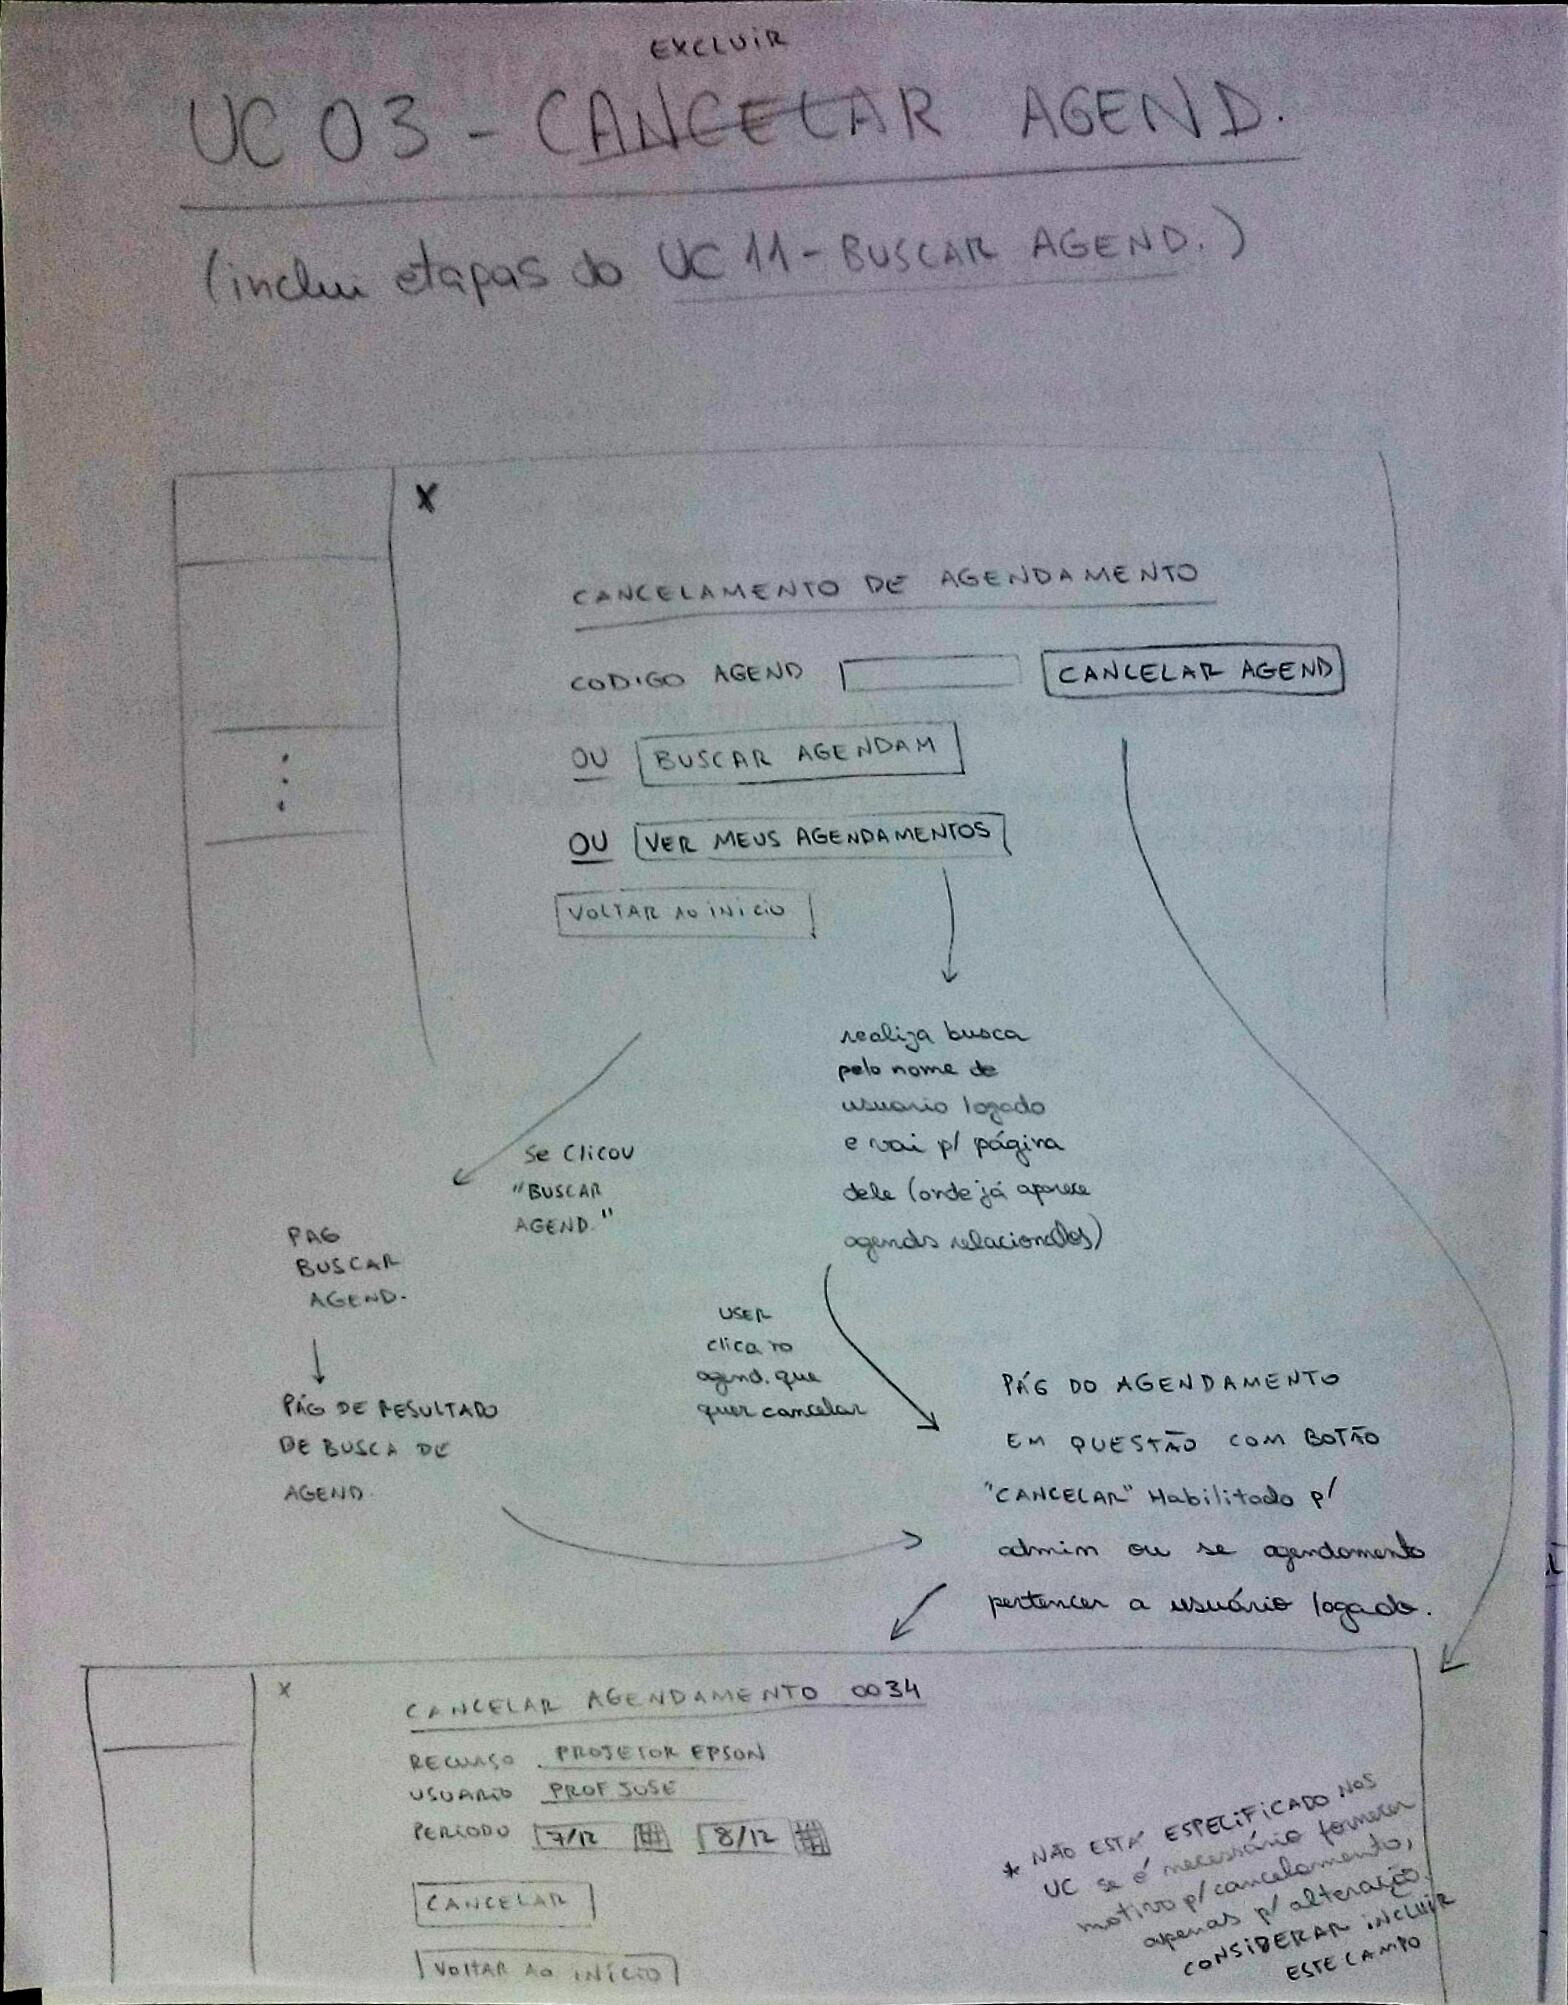 EXCLUIR
UC 03 - CANCELAR AGEND.
(inclui etapas do UC 11 - BUSCAR AGEND.)
X
CANCELAMENTO DE AGENDAMENTO
CODIGO AGEND CANCELAR AGEND
OU BUSCAR AGENDAM
OU VER MEUS AGENDAMENTOS
VOLTAR AO INICIO
realiza busca
pelo nome de
usuario logado
e vai p/ página
dele (onde já aparece
agends relacionados)
Se clicou
"BUSCAR
AGEND."
PAG
BUSCAR
AGEND.
PÁG DE RESULTADO
DE BUSCA DE
AGEND.
USER
clica no
agend. que
quer cancelar
PÁG DO AGENDAMENTO
EM QUESTÃO COM BOTÃO
"CANCELAR" Habilitado p/
admin ou se agendamento
pertencer a usuário logado.
X
CANCELAR AGENDAMENTO 0034
RECURSO PROJETOR EPSON
USUARIO PROF JOSE
PERIODO 7/12 8/12
CANCELAR
VOLTAR AO INÍCIO
* NÃO ESTÁ ESPECIFICADO NOS
UC se é necessário fornecer
motivo p/ cancelamento,
apenas p/ alteração.
CONSIDERAR INCLUIR
ESTE CAMPO